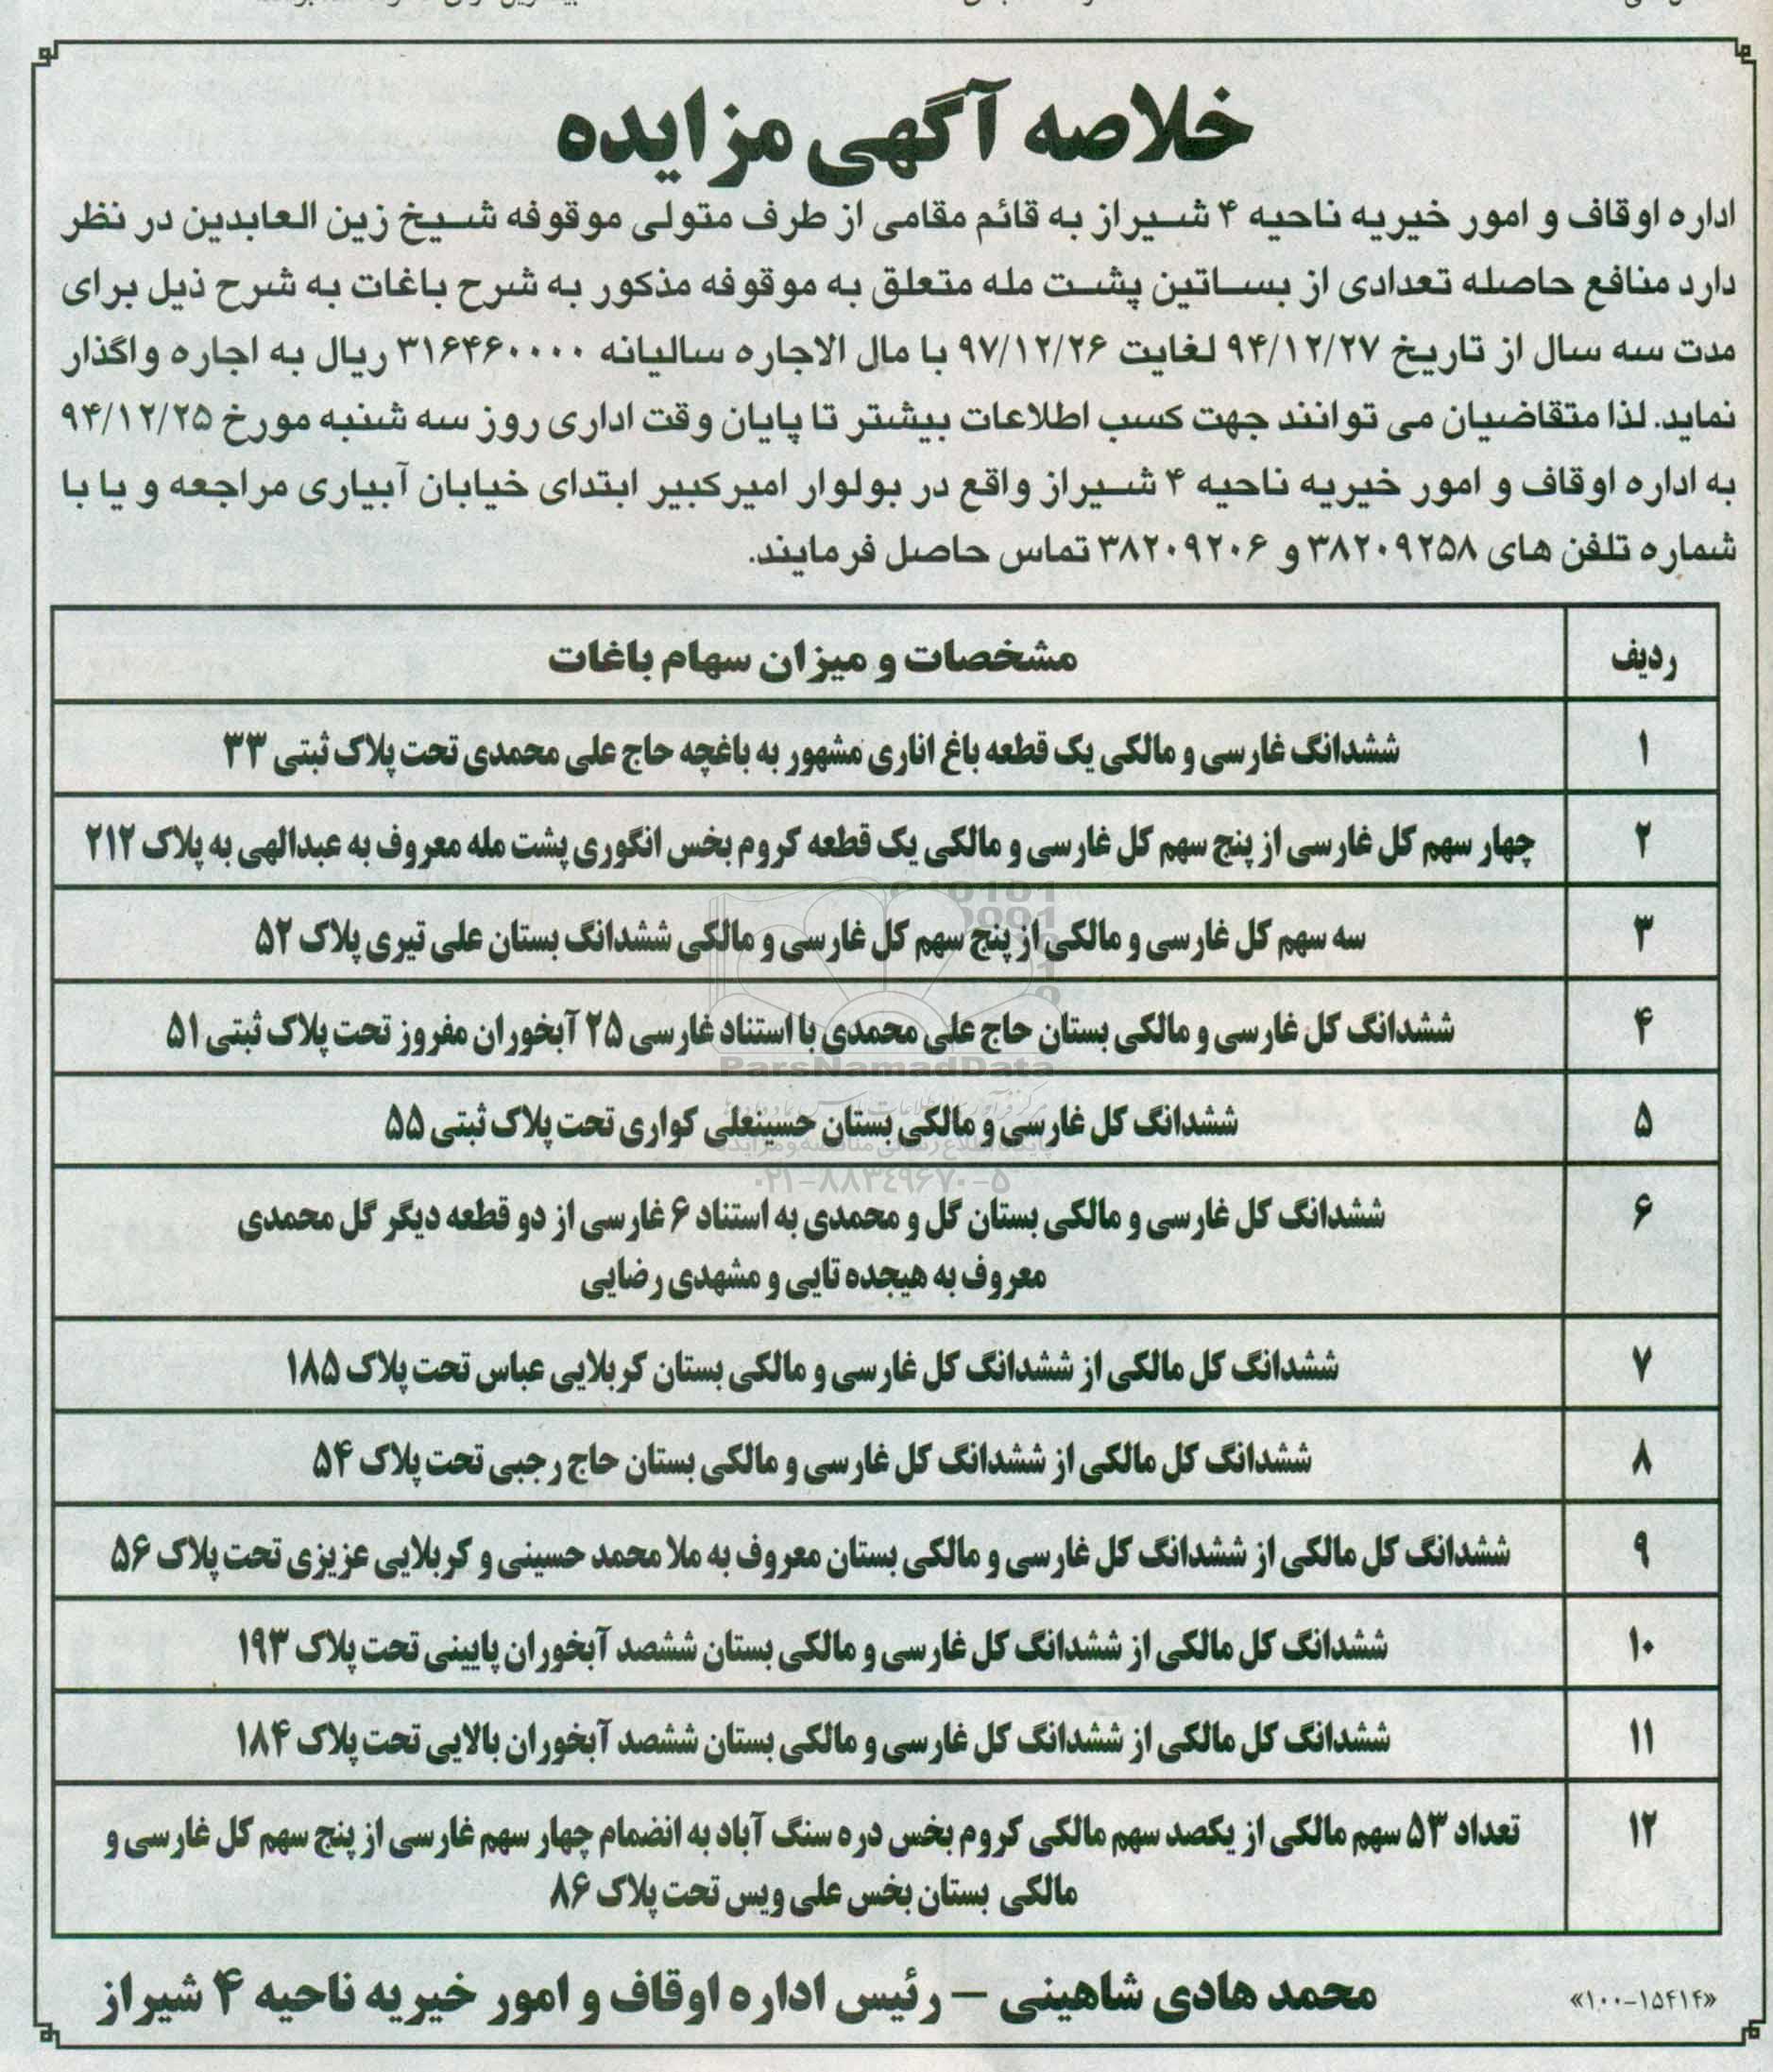 خلاصه آگهی مزایده
اداره اوقاف و امور خیریه ناحیه ۴ شیراز به قائم مقامی از طرف متولی موقوفه شیخ زین العابدین در نظر
دارد منافع حاصله تعدادی از بساتین پشت مله متعلق به موقوفه مذکور به شرح باغات به شرح ذیل برای
مدت سه سال از تاریخ ۹۴/۱۲/۲۷ لغایت ۹۷/۱۲/۲۶ با مال الاجاره سالیانه ۳۱۶۴۶۰۰۰۰ ریال به اجاره واگذار
نماید. لذا متقاضیان می توانند جهت کسب اطلاعات بیشتر تا پایان وقت اداری روز سه شنبه مورخ ۹۴/۱۲/۲۵
به اداره اوقاف و امور خیریه ناحیه ۴ شیراز واقع در بولوار امیرکبیر ابتدای خیابان آبیاری مراجعه و یا با
شماره تلفن های ۳۸۲۰۹۲۵۸ و ۳۸۲۰۹۲۰۶ تماس حاصل فرمایند.
ردیف مشخصات و میزان سهام باغات
۱ ششدانگ غارسی و مالکی یک قطعه باغ اناری مشهور به باغچه حاج علی محمدی تحت پلاک ثبتی ۳۳
۲ چهار سهم کل غارسی از پنج سهم کل غارسی و مالکی یک قطعه کروم بخس انگوری پشت مله معروف به عبدالهی به پلاک ۲۱۲
۳ سه سهم کل غارسی و مالکی از پنج سهم کل غارسی و مالکی ششدانگ بستان علی تیری پلاک ۵۲
۴ ششدانگ کل غارسی و مالکی بستان حاج علی محمدی با استناد غارسی ۲۵ آبخوران مفروز تحت پلاک ثبتی ۵۱
۵ ششدانگ کل غارسی و مالکی بستان حسینعلی کواری تحت پلاک ثبتی ۵۵
۶ ششدانگ کل غارسی و مالکی بستان گل و محمدی به استناد ۶ غارسی از دو قطعه دیگر گل محمدی
معروف به هیجده تایی و مشهدی رضایی
۷ ششدانگ کل مالکی از ششدانگ کل غارسی و مالکی بستان کربلایی عباس تحت پلاک ۱۸۵
۸ ششدانگ کل مالکی از ششدانگ کل غارسی و مالکی بستان حاج رجبی تحت پلاک ۵۴
۹ ششدانگ کل مالکی از ششدانگ کل غارسی و مالکی بستان معروف به ملا محمد حسینی و کربلایی عزیزی تحت پلاک ۵۶
۱۰ ششدانگ کل مالکی از ششدانگ کل غارسی و مالکی بستان ششصد آبخوران پایینی تحت پلاک ۱۹۳
۱۱ ششدانگ کل مالکی از ششدانگ کل غارسی و مالکی بستان ششصد آبخوران بالایی تحت پلاک ۱۸۴
۱۲ تعداد ۵۳ سهم مالکی از یکصد سهم مالکی کروم بخس دره سنگ آباد به انضمام چهار سهم غارسی از پنج سهم کل غارسی و
مالکی بستان بخس علی ویس تحت پلاک ۸۶
«۱۰۰-۱۵۴۱۴» محمد هادی شاهینی – رئیس اداره اوقاف و امور خیریه ناحیه ۴ شیراز
ParsNamadData
۰۲۱-۸۸۳۴۹۶۷۰-۵